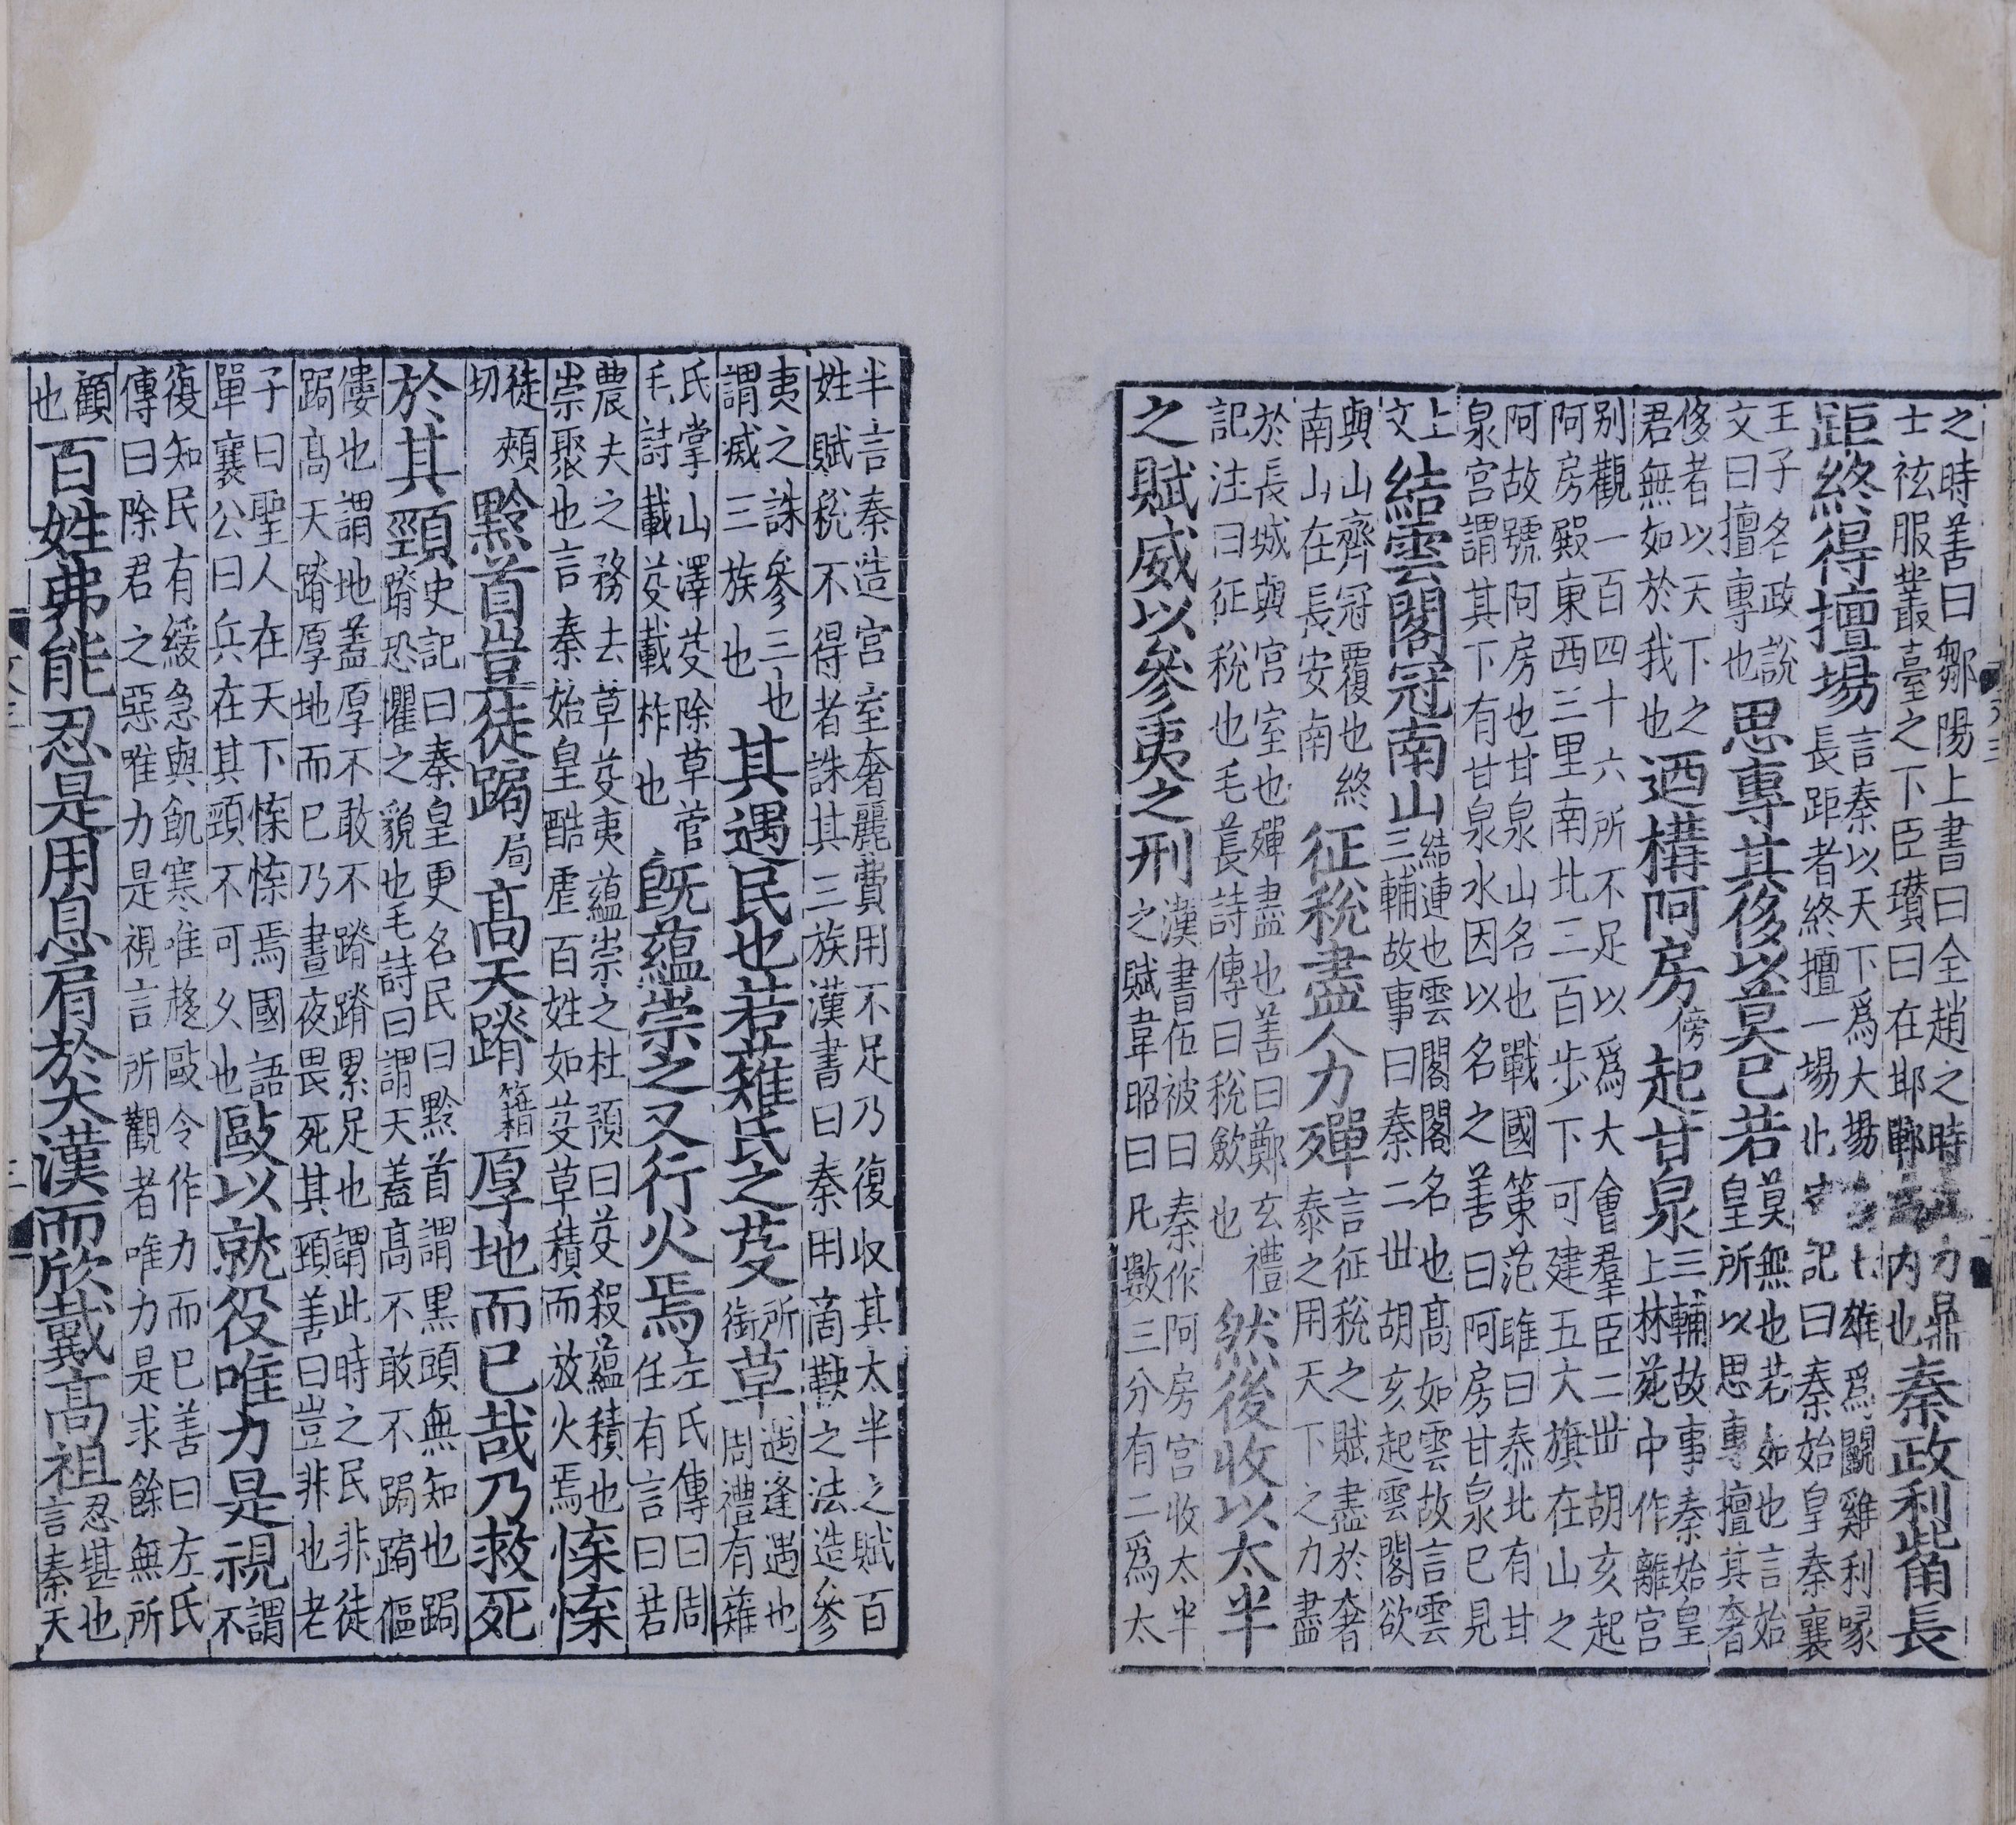 之時善曰鄒陽上書曰全趙之時力鼎士袨服叢臺之下臣瓚曰在邯鄲内也秦政利觜長
距終得擅場言秦以天下爲大場七雄爲鬭雞利喙長距者終擅一場也史記曰秦始皇秦襄
王子名政說文曰擅專也思專其侈以莫已若莫無也若如也言始皇所以思專擅其奢
侈者以天下之君無如於我也迺構阿房傍起甘泉三輔故事秦始皇上林苑中作離宮
别觀一百四十六所不足以爲大會羣臣二丗胡亥起阿房殿東西三里南北三百步下可建五大旗在山之
阿故號阿房也甘泉山名也戰國策范雎曰泰北有甘泉宮謂其下有甘泉水因以名之善曰阿房甘泉已見
上文結雲閣冠南山結連也雲閣閣名也髙如雲故言雲三輔故事曰秦二丗胡亥起雲閣欲
與山齊冠覆也終南山在長安南征稅盡人力殫言征稅之賦盡於奢泰之用天下之力盡
於長城與宮室也殫盡也善曰鄭玄禮記注曰征稅也毛萇詩傳曰稅斂也然後收以太半
之賦威以參夷之刑漢書伍被曰秦作阿房宮收太半之賦韋昭曰凡數三分有二爲太
半言秦造宮室奢麗費用不足乃復收其太半之賦百姓賦稅不得者誅其三族漢書曰秦用商鞅之法造參
夷之誅參三也謂滅三族也其遇民也若薙氏之芟所銜草遇逢遇也周禮有薙
氏掌山澤芟除草菅毛詩載芟載柞也旣蘊崇之又行火焉左氏傳曰周任有言曰若
農夫之務去草芟夷蘊崇之杜預曰芟殺蘊積也崇聚也言秦始皇酷虐百姓如芟草積而放火焉慄慄
徒頰切黔首豈徒跼局髙天蹐籍厚地而已哉乃救死
於其頸史記曰秦皇更名民曰黔首謂黑頭無知也跼蹐恐懼之貌也毛詩曰謂天蓋髙不敢不跼跼傴
僂也謂地蓋厚不敢不蹐蹐累足也謂此時之民非徒跼髙天蹐厚地而已乃晝夜畏死其頸善曰豈非也老
子曰聖人在天下慄慄焉國語單襄公曰兵在其頸不可乆也敺以就役唯力是視謂不
復知民有緩急與飢寒唯趍敺令作力而已善曰左氏傳曰除君之惡唯力是視言所觀者唯力是求餘無所
顧也百姓弗能忍是用息肩於大漢而欣戴髙祖忍堪也言秦天